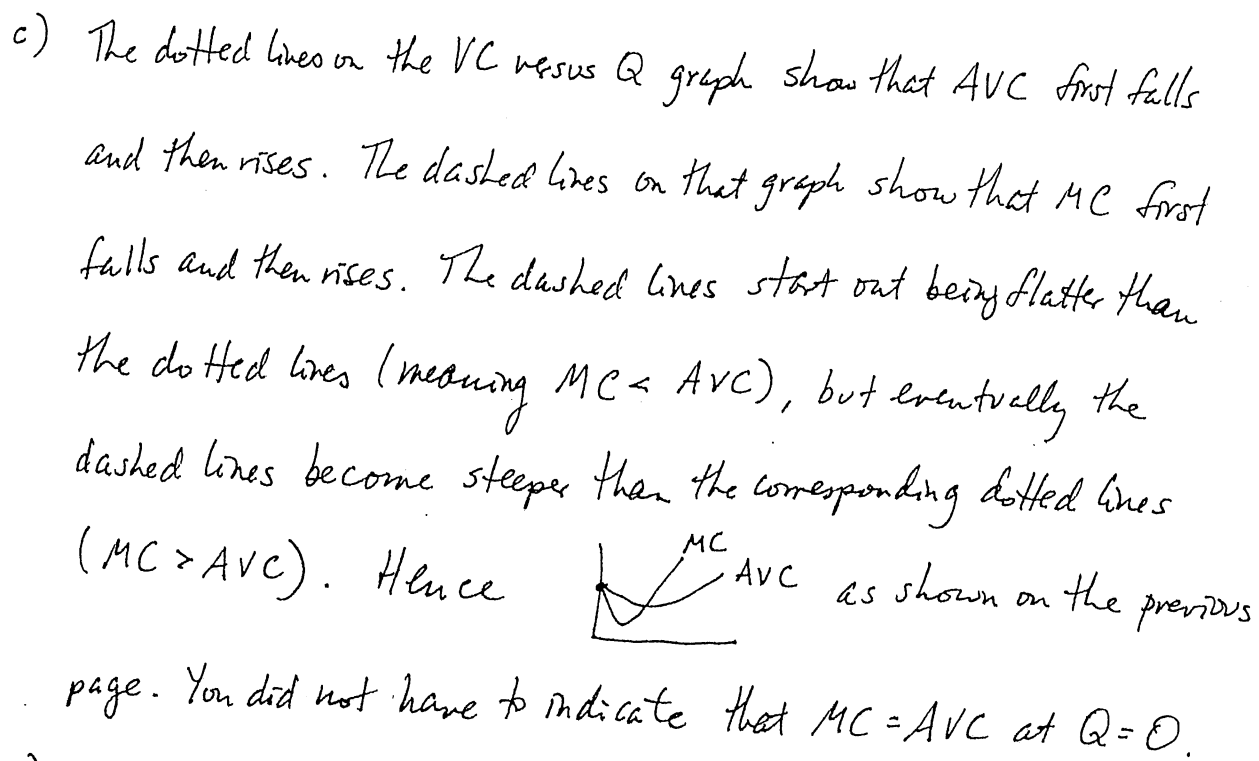 c) The dotted lines on the VC versus Q graph show that AVC first falls
and then rises. The dashed lines on that graph show that MC first
falls and then rises. The dashed lines start out being flatter than
the dotted lines (meaning MC < AVC), but eventually the
dashed lines become steeper than the corresponding dotted lines
(MC > AVC). Hence MC AVC as shown on the previous
page. You did not have to indicate that MC = AVC at Q = 0.